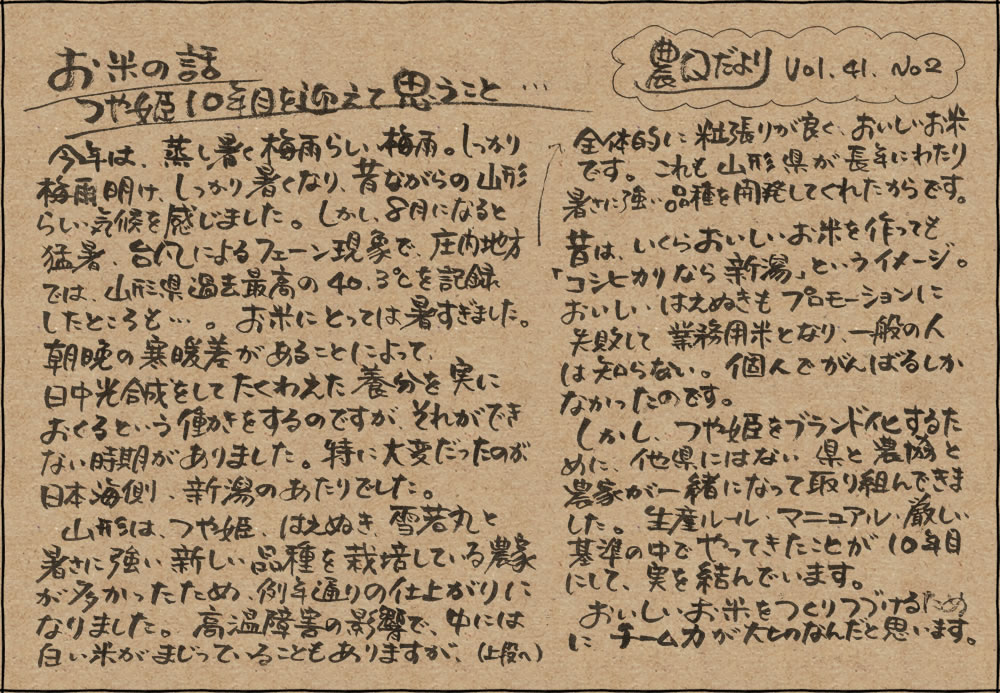 お米の話
つや姫10年目を迎えて思うこと…
農Qだより Vol.41. No2
今年は、蒸し暑く梅雨らしい梅雨。しっかり
梅雨明け、しっかり暑くなり、昔ながらの山形
らしい気候を感じました。しかし、8月になると
猛暑、台風によるフェーン現象で、庄内地方
では、山形県過去最高の40.3℃を記録
したところも…。お米にとっては、暑すぎました。
朝晩の寒暖差があることによって、
日中光合成をしてたくわえた養分を実に
おくるという働きをするのですが、それができ
ない時期がありました。特に大変だったのが
日本海側、新潟のあたりでした。
山形は、つや姫、はえぬき、雪若丸と
暑さに強い新しい品種を栽培している農家
が多かったため、例年通りの仕上がりに
なりました。高温障害の影響で、中には
白い米がまじっていることもありますが、(上段へ)
全体的に粒張りが良く、おいしいお米
です。これも山形県が長年にわたり
暑さに強い品種を開発してくれたからです。
昔は、いくらおいしいお米を作っても
「コシヒカリなら新潟」というイメージ。
おいしいはえぬきもプロモーションに
失敗して業務用米となり、一般の人
は知らない。個人でがんばるしか
なかったのです。
しかし、つや姫をブランド化するた
めに、他県にはない県と農協と
農家が一緒になって取り組んできま
した。生産ルール・マニュアル・厳しい
基準の中でやってきたことが10年目
にして、実を結んでいます。
おいしいお米をつくりつづけるため
にチーム力が大切なんだと思います。